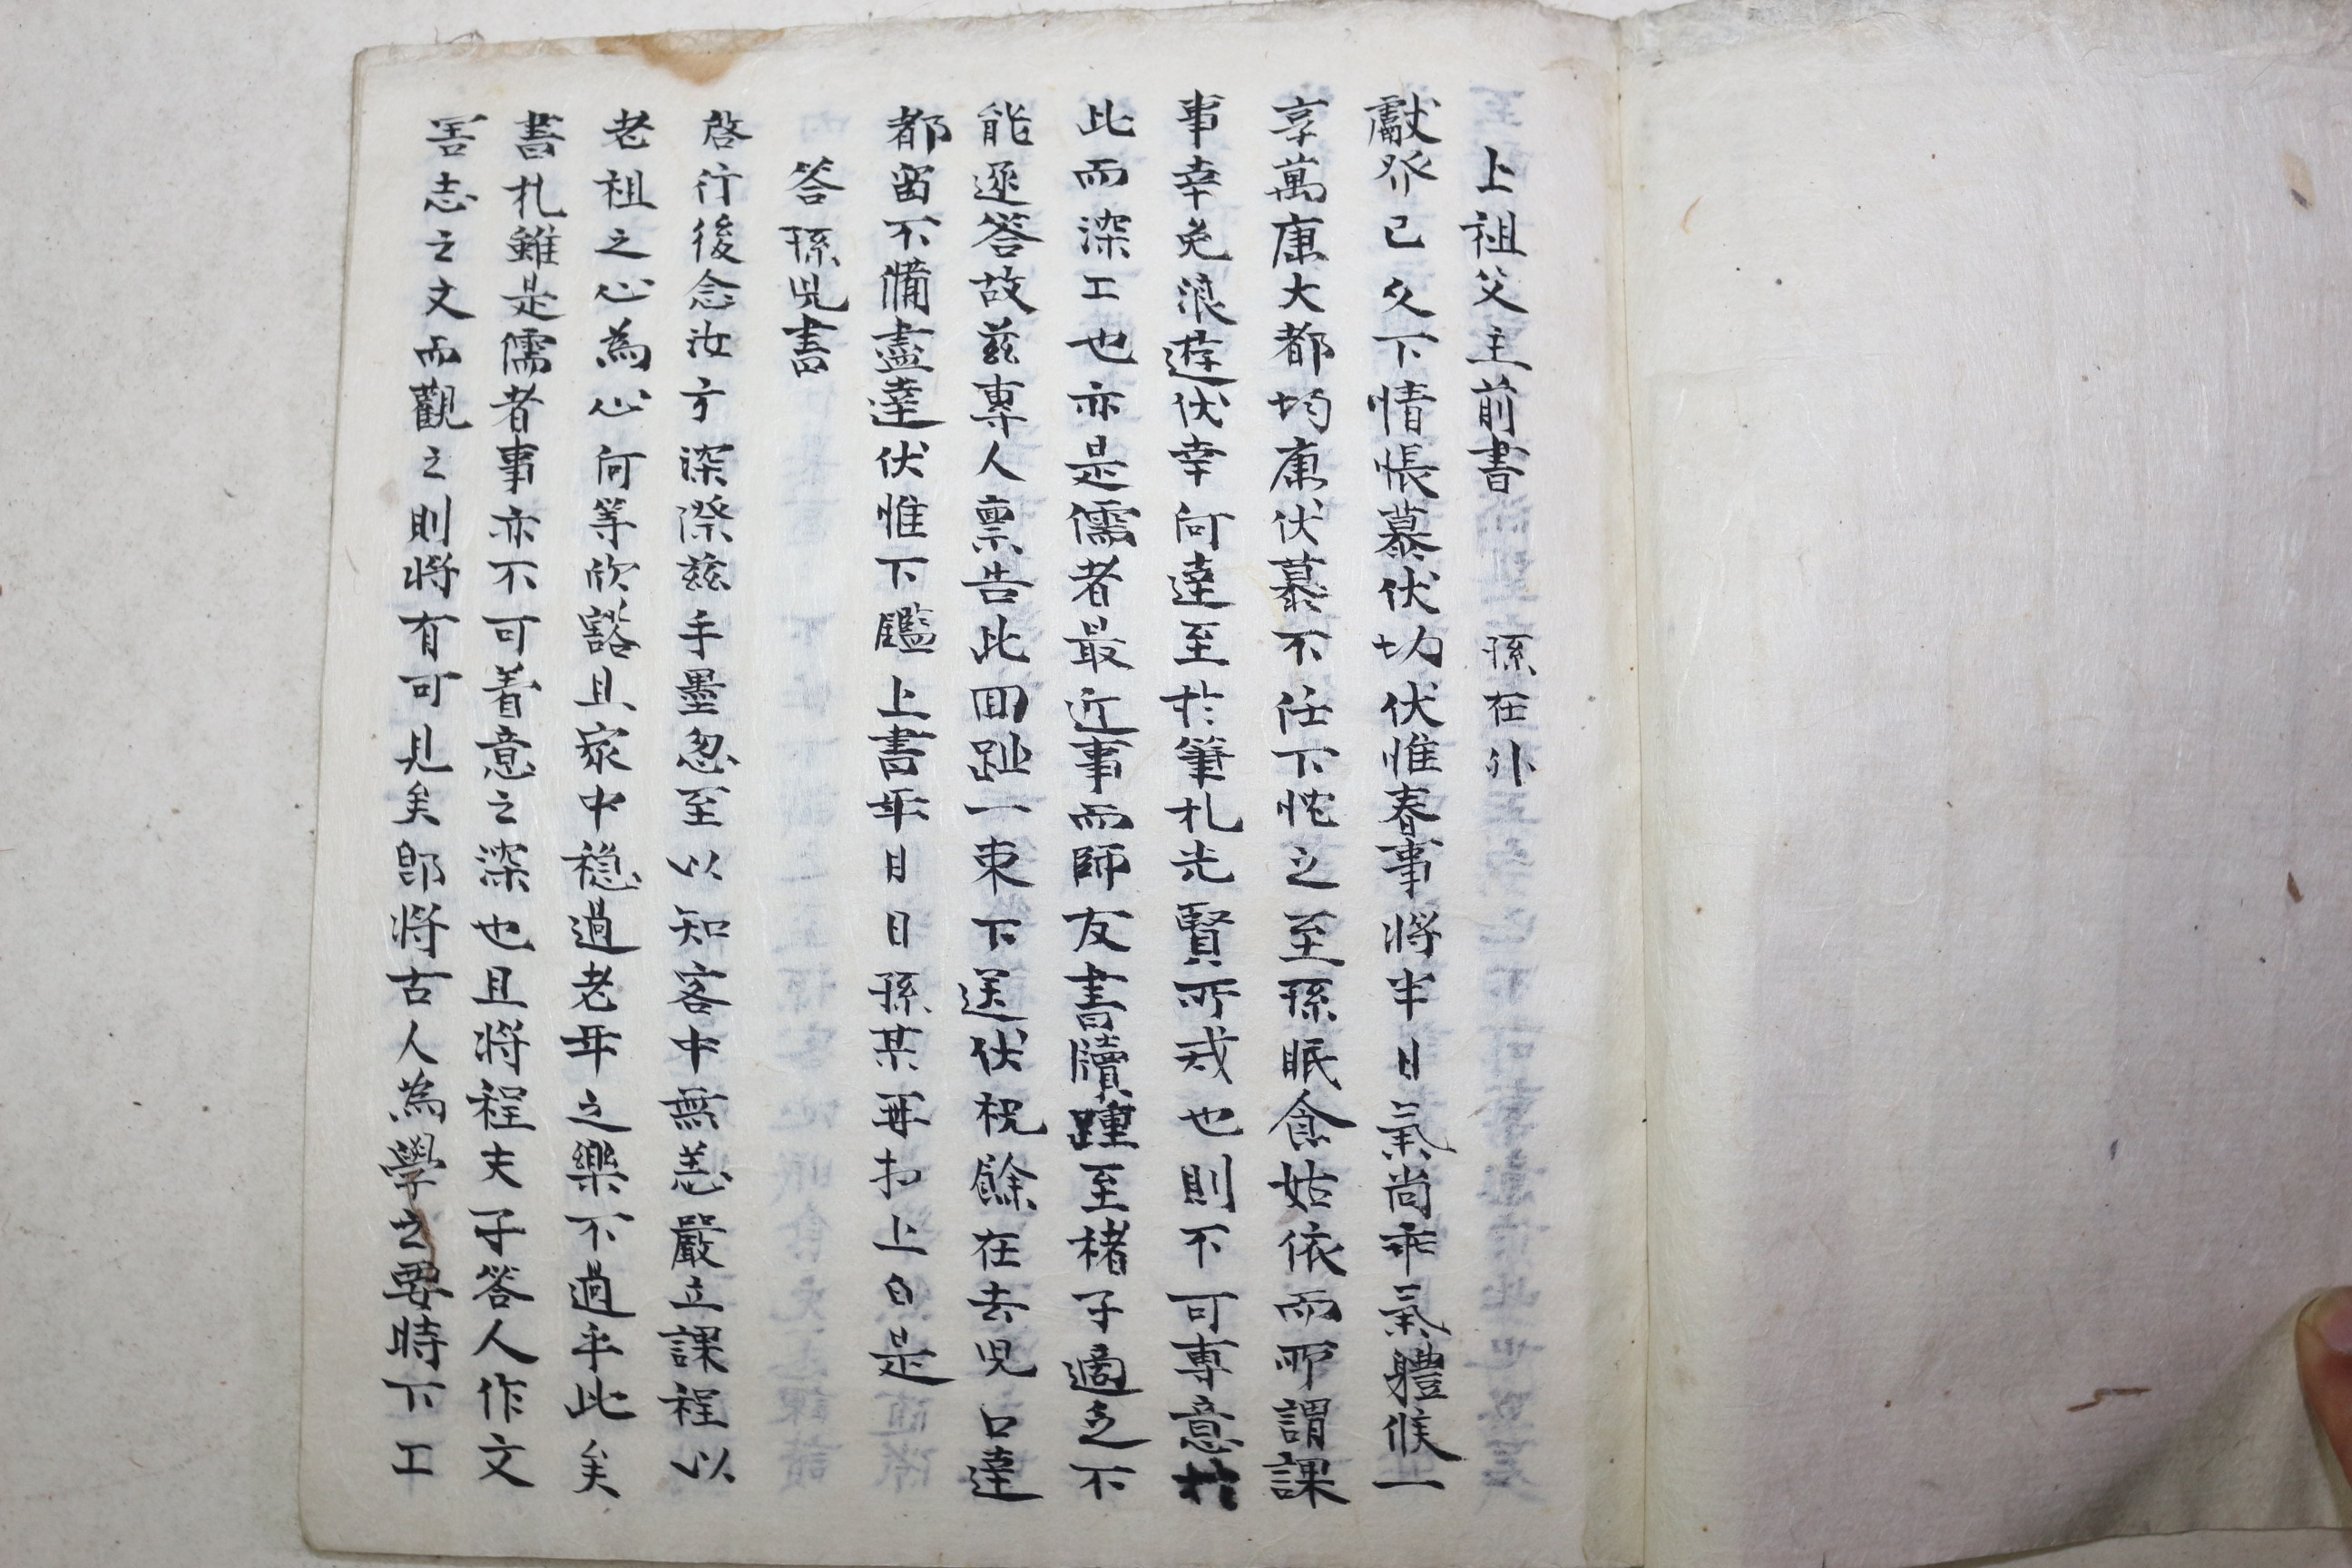 上祖父主前書 孫在外
獻發已久下情悵慕伏切伏惟春事將半日氣尚乖氣體候一
享萬康大都均康伏慕不任下忱之至孫眠食姑依而所謂課
事幸免浪遊伏幸何達至於筆札先賢所戒也則不可專意於
此而深工也亦是儒者最近事而師友書牘踵至楮子適乏不
能逐答故玆專人禀告此回趾一束下送伏祝餘在去児口達
都留不備盡達伏惟下鑑上書年月日孫某再拜上白是
答孫児書
啓行後念汝方深際玆手墨忽至以知客中無恙嚴立課程以
老祖之心為心何等欣豁且家中穩過老年之樂不過乎此矣
書札雖是儒者事亦不可着意之深也且將程夫子答人作文
害志之文而觀之則將有可見矣卽將古人為學之要時下工